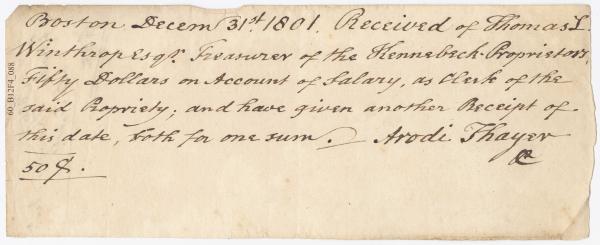 Boston Decem 31st 1801. Received of Thomas L.
Winthrop Esqr. Treasurer of the Kennebeck Proprietors,
Fifty Dollars on Account of Salary, as Clerk of the
said Propriety; and have given another Receipt of
this date, both for one sum. Arodi Thayer
50
60_B12F4_088